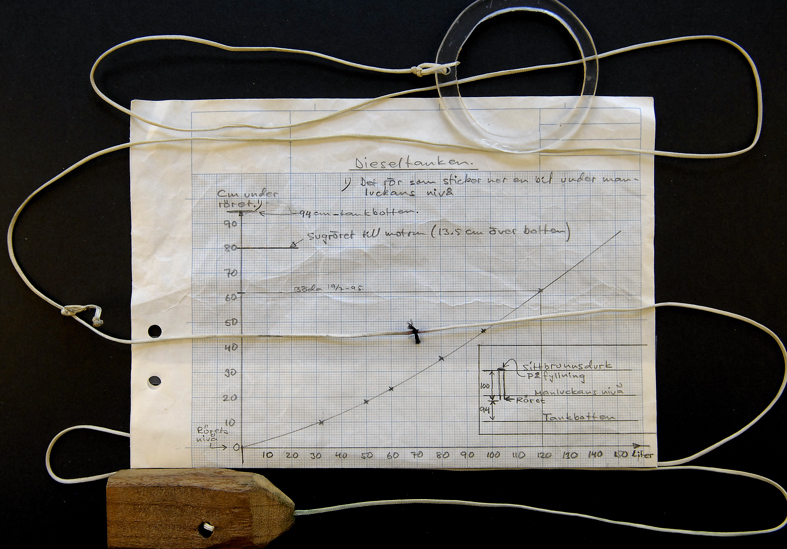 Dieseltanken.
1) Det rör som sticker ner en bit under man-
luckans nivå
Cm under
röret 1)
94 cm = tankbotten.
90
Sugröret till motorn (13.5 cm över botten)
80
70
60
50
40
30
20
10
0
Rörets
nivå
10 20 30 40 50 60 70 80 90 100 110 120 130 140 150 Liter
Sittbrunnsdurk
Påfyllning
100
Manluckans nivå
Röret
94
Tankbotten